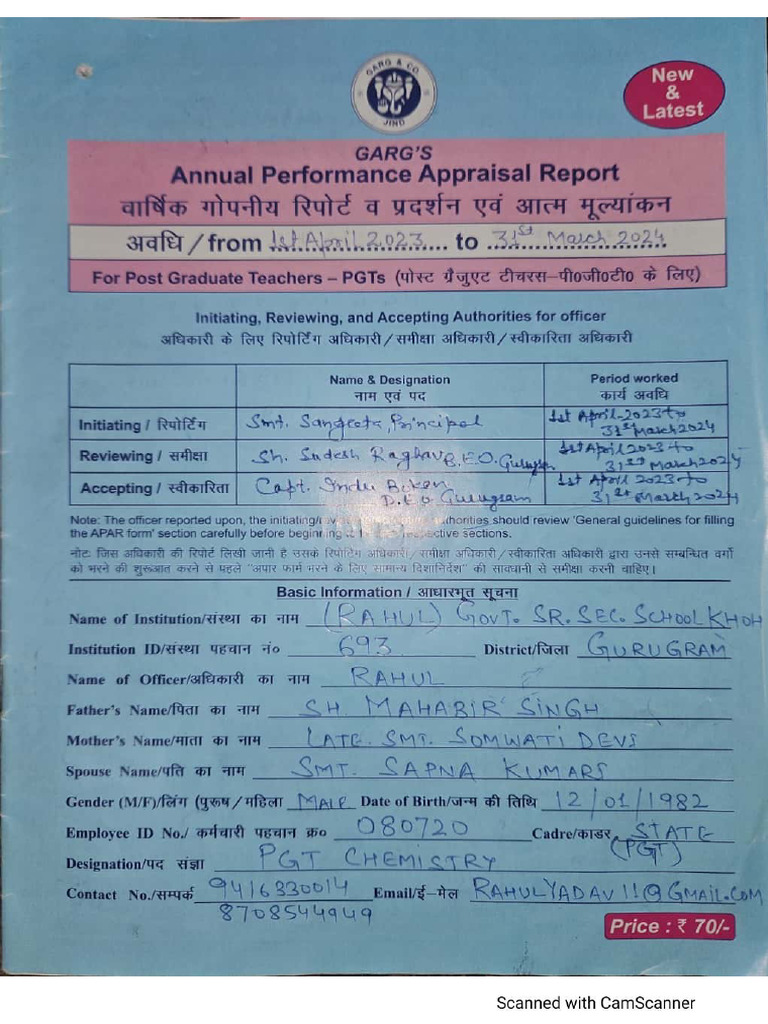 GARG & CO.
JIND
New
&
Latest
GARG'S
Annual Performance Appraisal Report
वार्षिक गोपनीय रिपोर्ट व प्रदर्शन एवं आत्म मूल्यांकन
अवधि / from 1st April 2023 to 31st March 2024
For Post Graduate Teachers – PGTs (पोस्ट ग्रैजुएट टीचरस–पी0जी0टी0 के लिए)
Initiating, Reviewing, and Accepting Authorities for officer
अधिकारी के लिए रिपोर्टिंग अधिकारी/समीक्षा अधिकारी/स्वीकारिता अधिकारी
Name & Designation Period worked
नाम एवं पद कार्य अवधि
Initiating / रिपोर्टिंग Smt. Sangeeta, Principal 1st April-2023 to 31st March 2024
Reviewing / समीक्षा Sh. Sudesh Raghav B.E.O. Gurugram 1st April 2023 to 31st March 2024
Accepting / स्वीकारिता Capt. Indu Boken D.E.O Gurugram 1st April 2023 to 31st March 2024
Note: The officer reported upon, the initiating/ authorities should review 'General guidelines for filling
the APAR form' section carefully before beginning respective sections.
नोटः जिस अधिकारी की रिपोर्ट लिखी जानी है उसके रिपोर्टिंग अधिकारी/समीक्षा अधिकारी/स्वीकारिता अधिकारी द्वारा उनसे सम्बन्धित वर्गो
को भरने की शुरूआत करने से पहले "अपार फार्म भरने के लिए सामान्य दिशानिर्देश" की सावधानी से समीक्षा करनी चाहिए।
Basic Information / आधारभूत सूचना
Name of Institution/संस्था का नाम (RAHUL) GOVT. SR. SEC. SCHOOL KHOH
Institution ID/संस्था पहचान नं० 693 District/जिला GURUGRAM
Name of Officer/अधिकारी का नाम RAHUL
Father's Name/पिता का नाम SH. MAHABIR SINGH
Mother's Name/माता का नाम LATE. SMT. SOMWATI DEVI
Spouse Name/पति का नाम SMT. SAPNA KUMARI
Gender (M/F)/लिंग (पुरूष/महिला MALE Date of Birth/जन्म की तिथि 12/01/1982
Employee ID No./ कर्मचारी पहचान क्र० 080720 Cadre/काडर STATE
(PGT)
Designation/पद संज्ञा PGT CHEMISTRY
Contact No./सम्पर्क 9416330014 Email/ई-मेल RAHULYADAV11@GMAIL.COM
8708544949
Price : ₹ 70/-
Scanned with CamScanner